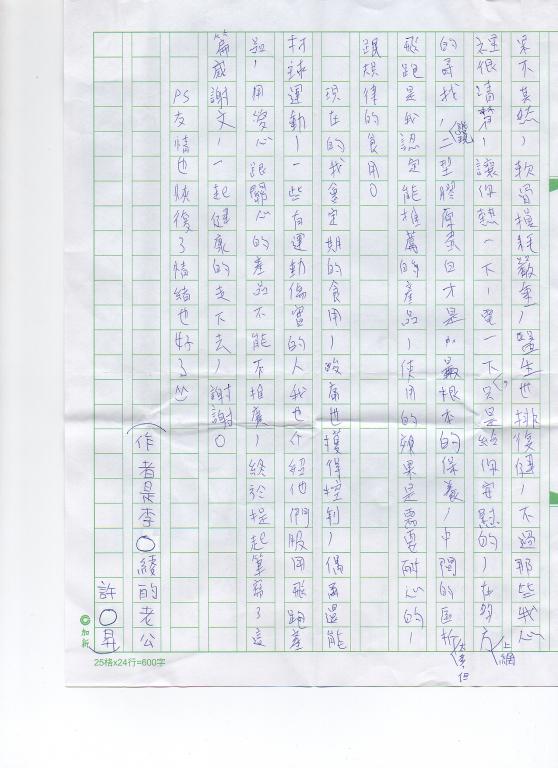 果不其然,軟骨損耗嚴重,醫生也排復健,不過那些我心
裡很清楚,讓你熱一下,電一下,只是給你安慰的,在努力上網
的尋找,發現二型膠原蛋白才是加最根本的保養,中間的區析太貴,但
飛跑是我認定能推薦的產品,使用的頻果是需要耐心的,
跟規律的食用。
現在的我會定期的食用,酸痛也獲得控制,偶而還能
打球運動,一些有運動傷害的人我也介紹他們服用飛跑產
品,用愛心跟關心的產品不能不推薦,終於提起筆寫了這
篇感謝文,一起健康的走下去,謝謝。
PS友情也恢復了情緒也好了
(作者是李○綾的老公
許○昇)
加新
25格x24行=600字